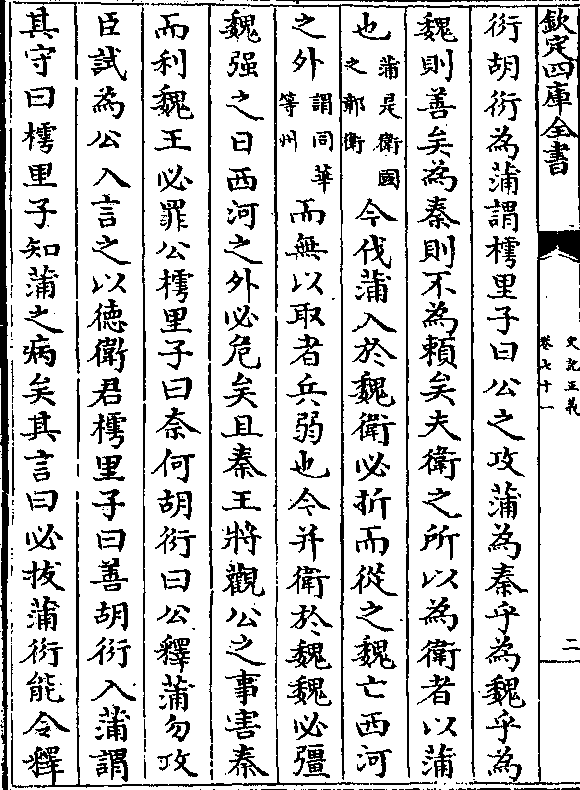 欽定四庫全書
史記正義
卷七十一
二
衍胡衍為蒲謂樗里子曰公之攻蒲為秦乎為魏乎為
魏則善矣為秦則不為頼矣夫衛之所以為衛者以蒲
也蒲是衛國之鄣衛今伐蒲入於魏衛必折而從之魏亡西河
之外謂同華等州而無以取者兵弱也今并衛於魏魏必彊
魏强之日西河之外必危矣且秦王將觀公之事害秦
而利魏王必罪公樗里子曰奈何胡衍曰公釋蒲勿攻
臣試為公入言之以徳衛君樗里子曰善胡衍入蒲謂
其守曰樗里子知蒲之病矣其言曰必拔蒲衍能令釋